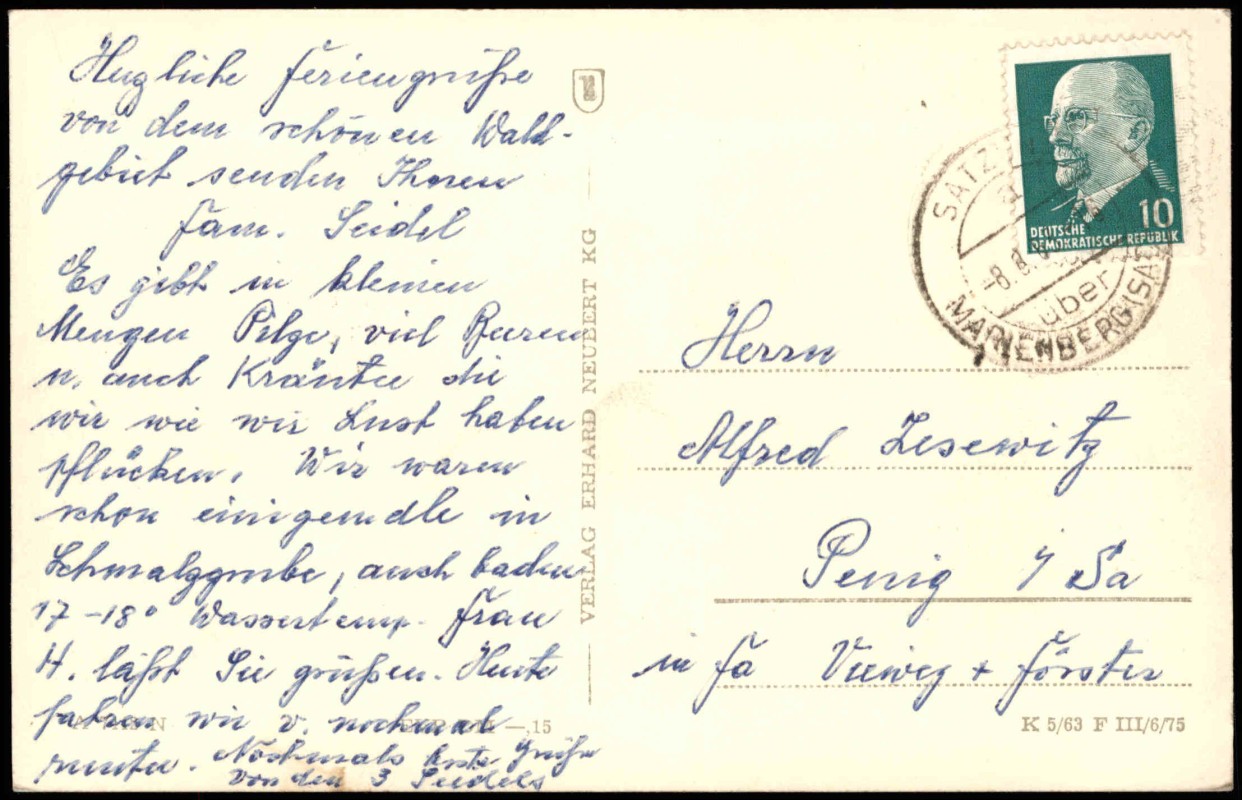 Herzliche Feriengrüße
von dem schönen Wald-
gebiet senden Ihnen
Fam. Seidel
Es gibt in kleinen
Mengen Pilze, viel Beeren
u. auch Kräuter die
wir wie wir Lust haben
pflücken. Wir waren
schon einigemale in
Schmalzgrube, auch baden
17-18° Wassertemp. Frau
H. läßt Sie grüßen. Heute
fahren wir v. nochmal
runter. Nochmals beste Grüße
von den 3 Seidels
VERLAG ERHARD NEUBERT KG
—,15
10
DEUTSCHE
DEMOKRATISCHE REPUBLIK
SATZ
-8.8.
über
MARIENBERG (SA
Herrn
Alfred Lesewitz
Penig i/Sa
in Fa Vieweg + Förster
K 5/63 F III/6/75